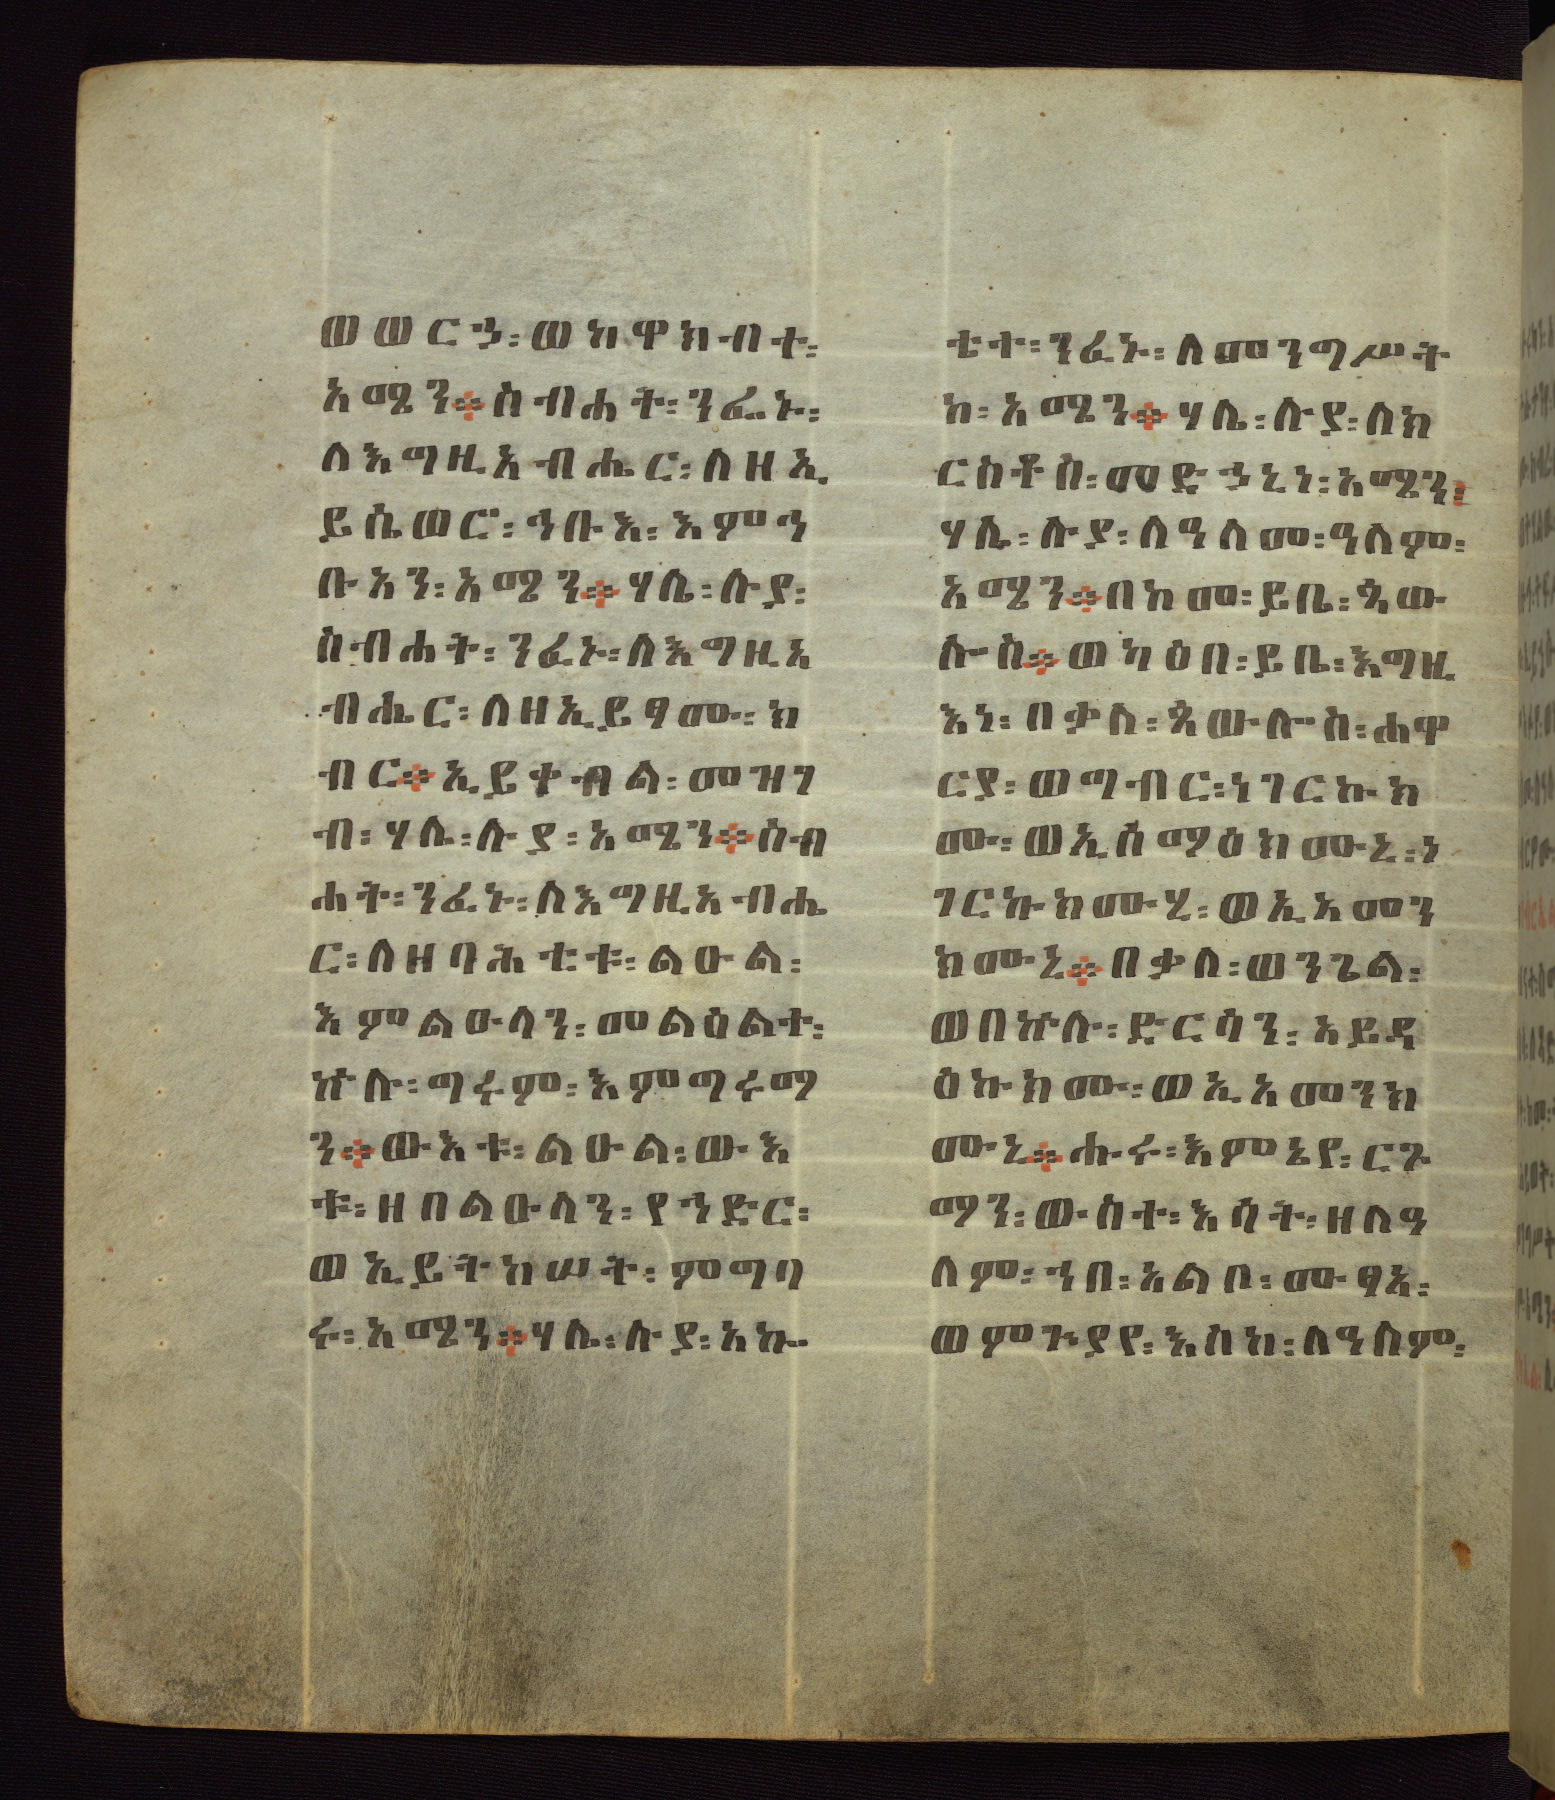 ወወርኃ፡ወከዋክብተ፡
አሜን። ስብሐት፡ንፌኑ፡
ለእግዚአብሔር፡ለዘኢ
ይሴወር፡ኅቡእ፡እምኅ
ቡአን፡አሜን። ሃሌ፡ሉያ፡
ስብሐት፡ንፌኑ፡ለእግዚአ
ብሔር፡ለዘኢይፃመው፡ክ
ብር። ኢይትብል፡መዝገ
ብ፡ሃሌ፡ሉያ፡አሜን። ስብ
ሐት፡ንፌኑ፡ለእግዚአብሔ
ር፡ለዘባሕቲቱ፡ልዑል፡
እምልዑላን፡መልዕልተ፡
ኵሉ፡ግሩም፡እምግሩማ
ን። ውእቱ፡ልዑል፡ውእ
ቱ፡ዘበልዑላን፡የኀድር፡
ወኢይትከሠት፡ምግባ
ሩ፡አሜን። ሃሌ፡ሉያ፡አኰ
ቴተ፡ንፌኑ፡ለመንግሥት
ከ፡አሜን። ሃሌ፡ሉያ፡ለክ
ርስቶስ፡መድኃኒነ፡አሜን፡
ሃሌ፡ሉያ፡ለዓለመ፡ዓለም፡
አሜን። በከመ፡ይቤ፡ጳው
ሎስ። ወካዕበ፡ይቤ፡እግዚ
እነ፡በቃለ፡ጳውሎስ፡ሐዋ
ርያ፡ወግብር፡ነገርኩክ
ሙ፡ወኢሰማዕክሙኒ፡ነ
ገርኩክሙሂ፡ወኢአመን
ክሙኒ። በቃለ፡ወንጌል፡
ወበኵሉ፡ድርሳን፡አይዳ
ዕኩክሙ፡ወኢአመንክ
ሙኒ። ሑሩ፡እምኔየ፡ርጉ
ማን፡ውስተ፡እሳት፡ዘለዓ
ለም፡ኀበ፡አልቦ፡ሙፃእ፡
ወምጕያየ፡እስከ፡ለዓለም፡